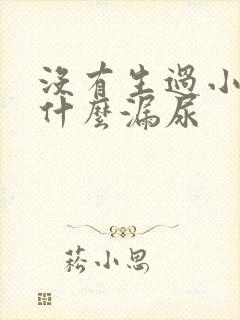 沒有生過小
什麼漏尿
菘小思